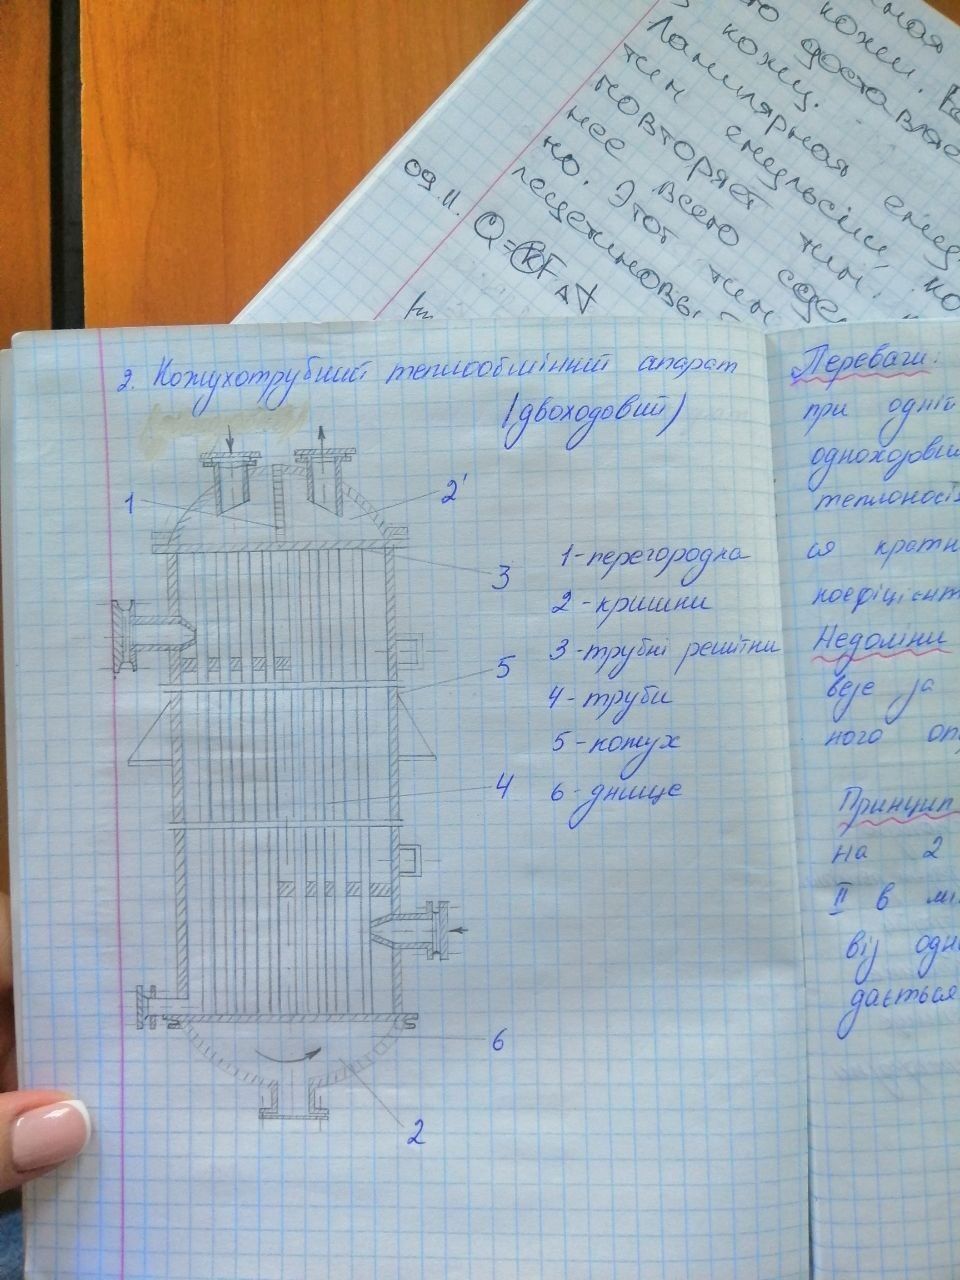 ная
кожи. Ва
то доставляе
кожу.
Ламилярная
тин эмульсии
повторяет
нее всего тип
но. Этот тип
09.11.
Q=KFΔ
2. Кожухотрубний теплообмінний апарат
(двоходовий)
1
2'
3
5
4
6
2
1-перегородка
2-кришки
3-трубні решітки
4-труби
5-кожух
6-днище
Переваги:
при одній
одноходовим
теплоносі
ся кратн
коефіцієнт
Недоліки
веде за
ного оп
Принцип
на 2
II в мі
від одн
дається